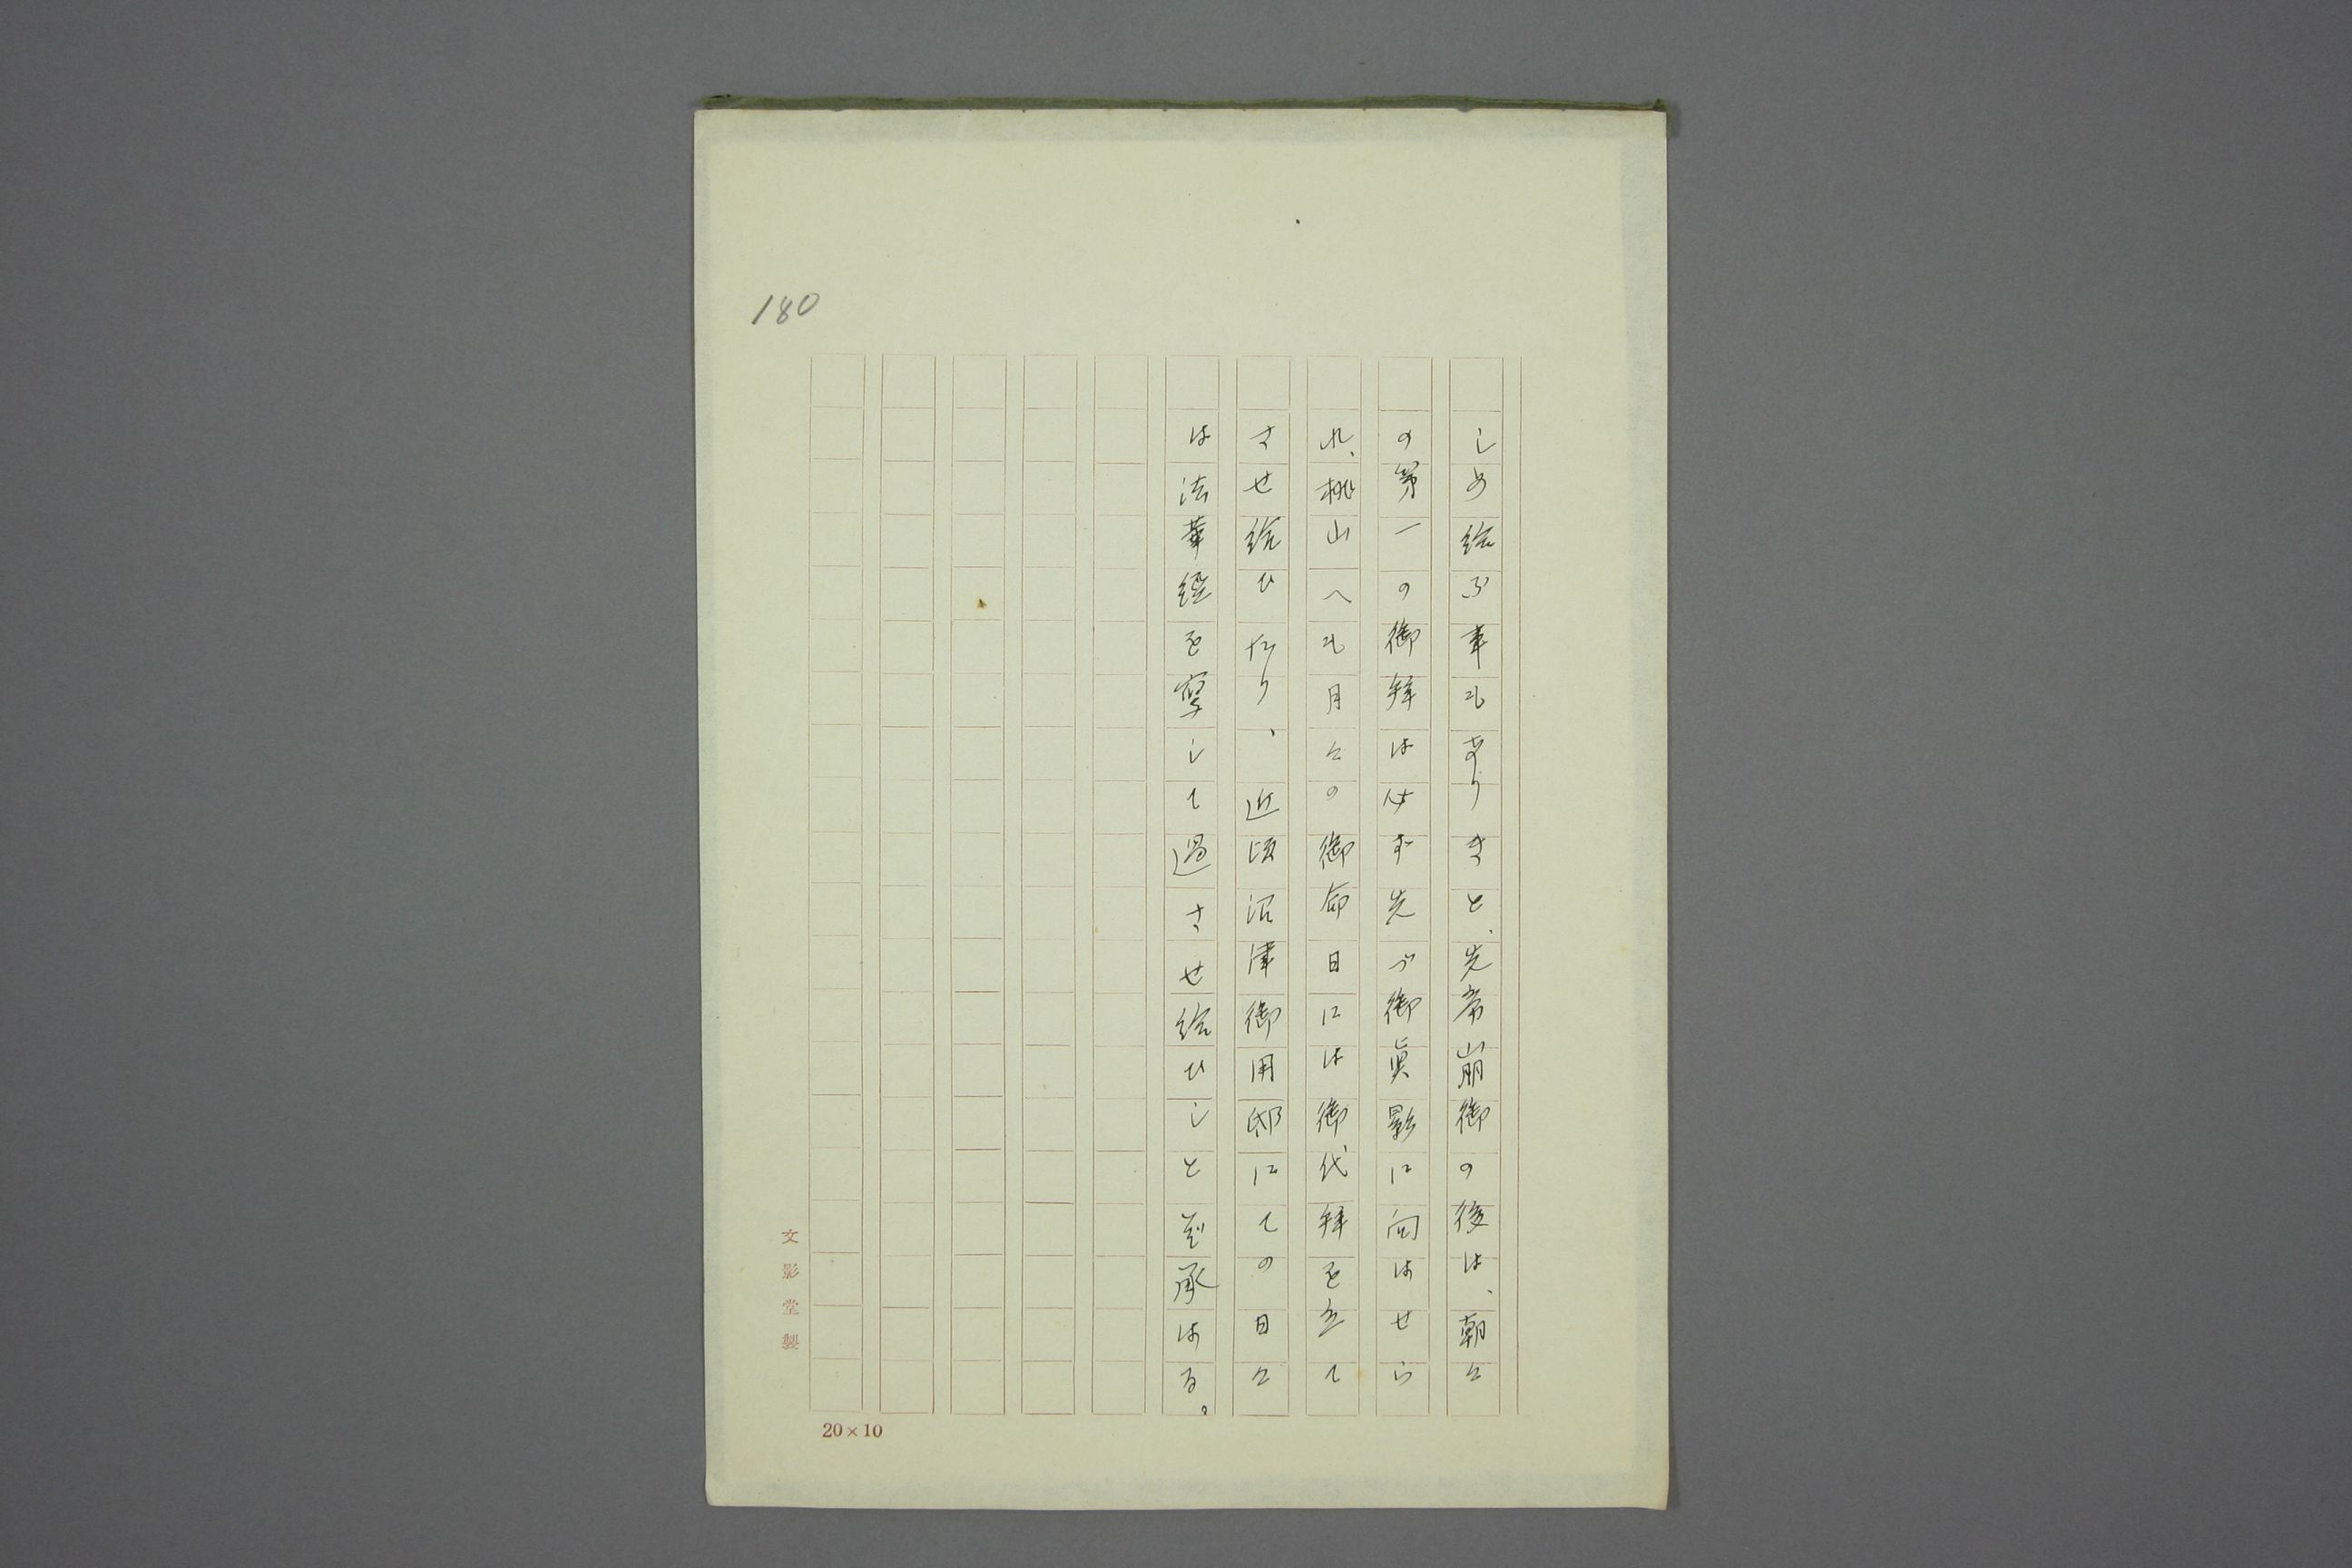 180
しめ給ふ事もありきと、先帝崩御の後は、朝々
の第一の御拝は必ず先づ御眞影に向はせら
れ、桃山へも月々の御命日には御代拝を立て
させ給ひたり、近頃沼津御用邸にての日々
は法華經を寫して過させ給ひしとぞ承はる。
文影堂製
20×10